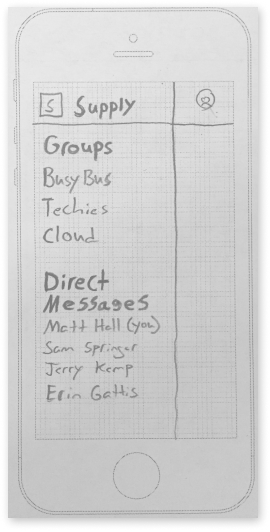 S Supply
Groups
Busy Bus
Techies
Cloud
Direct
Messages
Matt Hall (you)
Sam Springer
Jerry Kemp
Erin Gattis